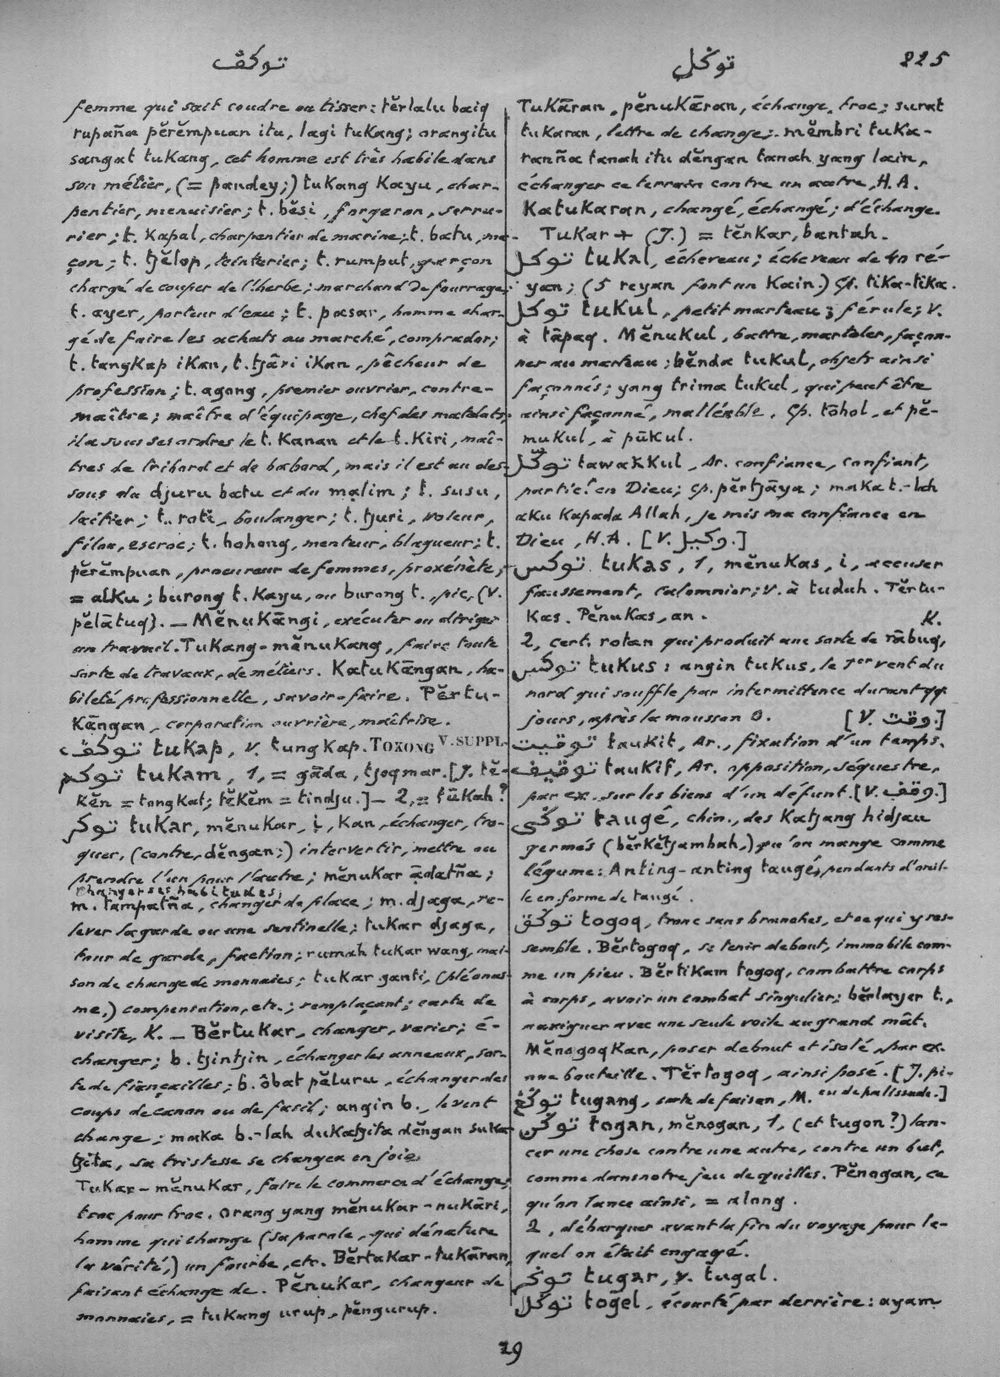 توكڤ
توڬل
225
femme qui sait coudre ou tisser: tĕrlalu baiq
rupaña pĕrĕmpuan itu, lagi tukang; orang itu
sangat tukang, cet homme est très habile dans
son métier, (= pandey;) tukang kayu, char-
pentier, menuisier; t. bĕsi, forgeron, serru-
rier; t. kapal, charpentier de marine; t. batu, ma-
çon; t. tjĕlop, teinturier; t. rumput, garçon
chargé de couper de l'herbe; marchand de fourrage;
t. ayer, porteur d'eau; t. pasar, homme char-
gé de faire les achats au marché, comprador;
t. tangkap ikan, t. tjâri ikan, pêcheur de
profession; t. agong, premier ouvrier, contre-
maître; maître d'équipage, chef des matelots;
il a sous ses ordres le t. kanan et le t. kiri, maî-
tres de tribord et de babord, mais il est au des-
sous du djuru batu et du malim; t. susu,
laitier; t. roti, boulanger; t. tjuri, voleur,
filou, escroc; t. bohong, menteur, blagueur; t.
pĕrĕmpuan, procureur de femmes, proxénète,
= alku; burong t. kayu, ou burong t., pic, (v.
pĕlātuq). — Mĕnukāngi, exécuter ou diriger
un travail. Tukang-mĕnukang, faire toute
sorte de travaux, de métiers. Katukāngan, ha-
bileté professionnelle, savoir-faire. Pĕrtu-
kāngan, corporation ouvrière, maîtrise.
توكڤ tukap, v. tungkap. TOKONG V. SUPPL.
توكم tukam, 1, = gāda, tjoqmar. [J. tĕ-
kĕn = tongkat; tĕkĕm = tindju.] — 2, = tūkah?
توكر tukar, mĕnukar, i, kan, échanger, tro-
quer, (contre, dĕngan;) intervertir, mettre ou
prendre l'un pour l'autre; mĕnukar ādatña;
changer ses habitudes;
m. tampatña, changer de place; m. djaga, re-
lever la garde ou une sentinelle; tukar djaga,
tour de garde, faction; rumah tukar wang, mai-
son de change de monnaies; tukar ganti, (pléonas-
me,) compensation, etc.; remplaçant; carte de
visite, K. — Bĕrtukar, changer, varier; é-
changer; b. tjintjin, échanger les anneaux, sor-
te de fiançailles; b. ôbat pĕluru, échanger des
coups de canon ou de fusil; angin b., le vent
change; maka b.-lah dukatjita dĕngan suka-
tjita, sa tristesse se changea en joie.
Tukar-mĕnukar, faire le commerce d'échange,
troc pour troc. orang yang mĕnukar-nukāri,
homme qui change (sa parole, qui dénature
la vérité,) un fourbe, etc. Bĕrtukar-tukāran,
faisant échange de. Pĕnukar, changeur de
monnaies, = tukang urup, pĕngurup.
Tukāran, pĕnukāran, échange, troc; surat
tukaran, lettre de change; mĕmbri tuka-
ranña tanah itu dĕngan tanah yang lain,
échanger ce terrain contre un autre, H.A.
Katukaran, changé, échangé; d'échange.
Tukar + (J.) = tĕnkar, bantah.
توكل tukal, écheveau; écheveau de 40 ré-
yan; (5 reyan font un kain.) Cp. tika-tika.
توكل tukul, petit marteau; férule; v.
à tāpaq. Mĕnukul, battre, marteler, façon-
ner au marteau; bĕnda tukul, objets ainsi
façonnés; yang trima tukul, qui peut être
ainsi façonné, malléable. Cp. tōhol, et pĕ-
mukul, à pūkul.
توكل tawakkul, Ar. confiance, confiant,
partic.t en Dieu; cp. pĕrtjāya; maka t.-lah
aku kapada Allah, je mis ma confiance en
Dieu, H.A. [V. وكيل.]
توكس tukas, 1, mĕnukas, i, accuser
faussement, calomnier; v. à tuduh. Tĕrtu-
kas. Pĕnukas, an. K.
2, cert. rotan qui produit une sorte de nābuq,
توكس tukus: angin tukus, le 1er vent du
nord qui souffle par intermittence durant qq.
jours, après la mousson O. [V. وقت.]
توقيت taukit, Ar., fixation d'un temps.
توقيف taukif, Ar. opposition, séquestre,
par ex. sur les biens d'un défunt. [V. وقف.]
توڬي taugé, chin., des katjang hidjau
germés (bĕrkĕtjambah,) qu'on mange comme
légume: Anting-anting taugé, pendants d'oreil-
le en forme de taugé.
توڬق togoq, tronc sans branches, et ce qui y res-
semble. Bĕrtogoq, se tenir debout, immobile com-
me un pieu. Bĕrtikam togoq, combattre corps
à corps, avoir un combat singulier; bĕrlayer t.,
naviguer avec une seule voile au grand mât.
Mĕnogoqkan, poser debout et isolé, par ex.
une bouteille. Tĕrtogoq, ainsi posé. [J. pi-
eu de palissade.]
توڬڠ tugang, sorte de faisan, M.
توڬن togan, mĕnogan, 1, (et tugon?) lan-
cer une chose contre une autre, contre un but,
comme dans notre jeu de quilles. Pĕnogan, ce
qu'on lance ainsi, = along.
2, débarquer avant la fin du voyage pour le-
quel on était engagé.
توڬر tugar, v. tugal.
توڬل togel, écourté par derrière: ayam
29